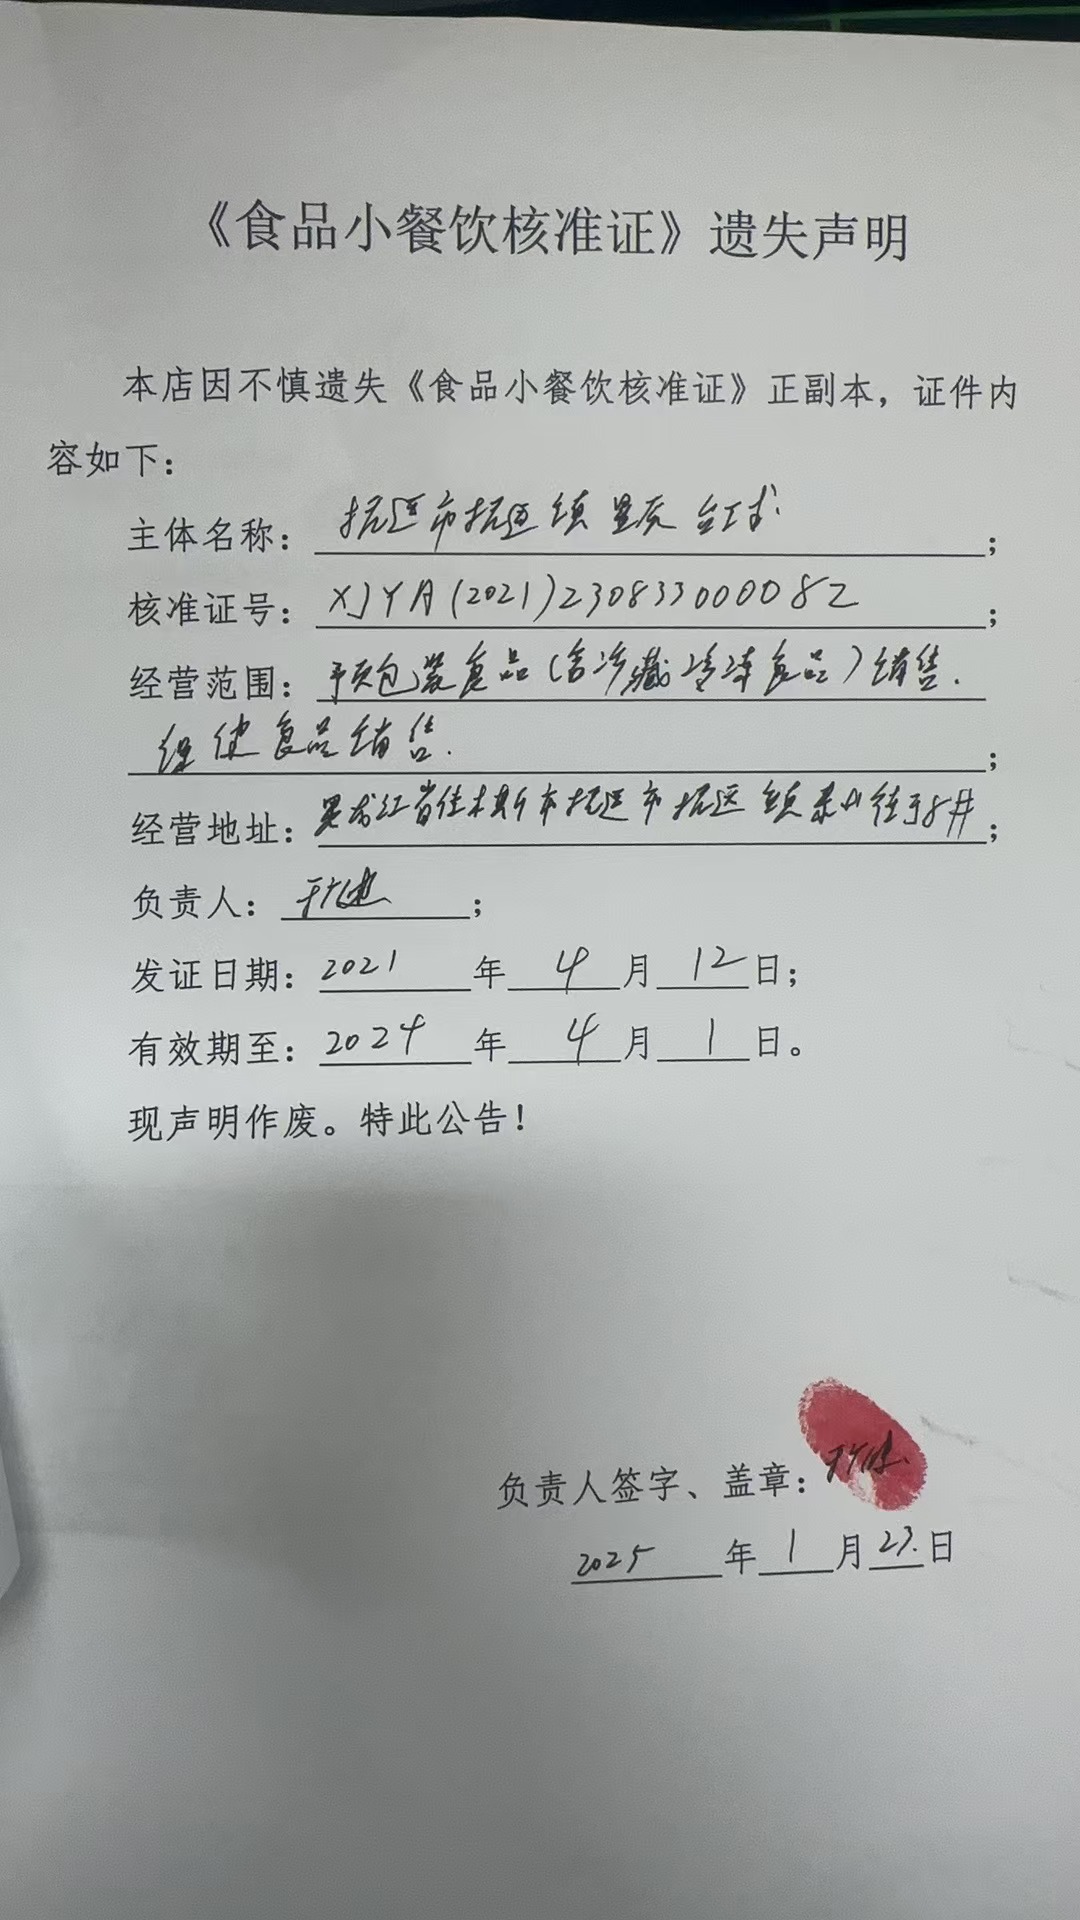 《食品小餐饮核准证》遗失声明
本店因不慎遗失《食品小餐饮核准证》正副本，证件内
容如下：
主体名称：抚远市抚远镇星辰台球；
核准证号：XJYA(2021)230833000082；
经营范围：预包装食品(含冷藏冷冻食品)销售.
保健食品销售.；
经营地址：黑龙江省佳木斯市抚远市抚远镇；
负责人：于；
发证日期：2021年4月12日；
有效期至：2024年4月1日。
现声明作废。特此公告！
负责人签字、盖章：于
2025年1月23.日